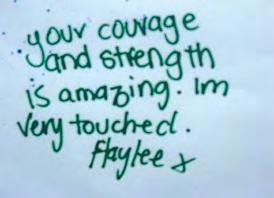 your courage
and strength
is amazing. Im
very touched.
Haylee x